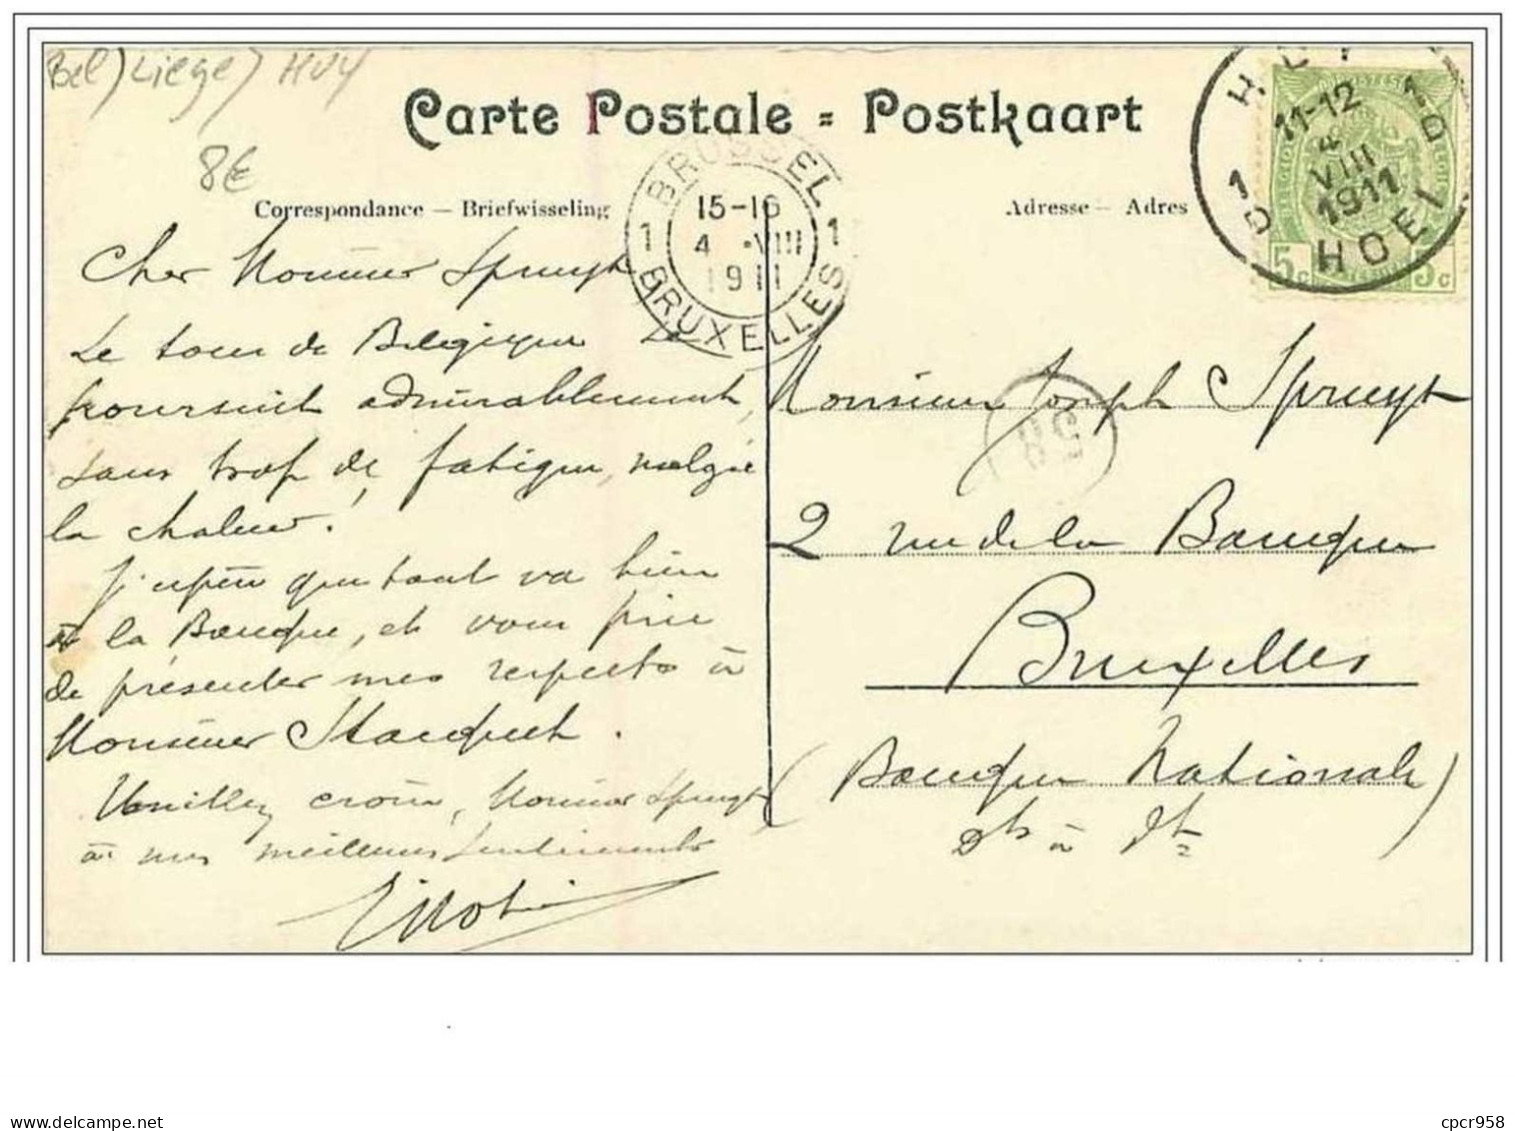 Bel) Liège) HUY
8€
Carte Postale = Postkaart
Correspondance — Briefwisseling
Adresse — Adres
BRUSSEL
15-16
1 4 VIII 1
1911
BRUXELLES
HUY
11-12
4
VIII
1911
1D 1D
HOEI
5c 5c
Cher Monsieur Spruyt
Le tour de Belgique se
poursuit admirablement,
sans trop de fatigue, malgré
la chaleur.
J'espère que tout va bien
à la Banque, et vous prie
de présenter mes respects à
Monsieur Stacquet.
Veuillez croire, Monsieur Spruyt
à mes meilleurs sentiments
Monsieur Joseph Spruyt
2 rue de la Banque
Bruxelles
(Banque Nationale)
Dts à Dt
cpcr958